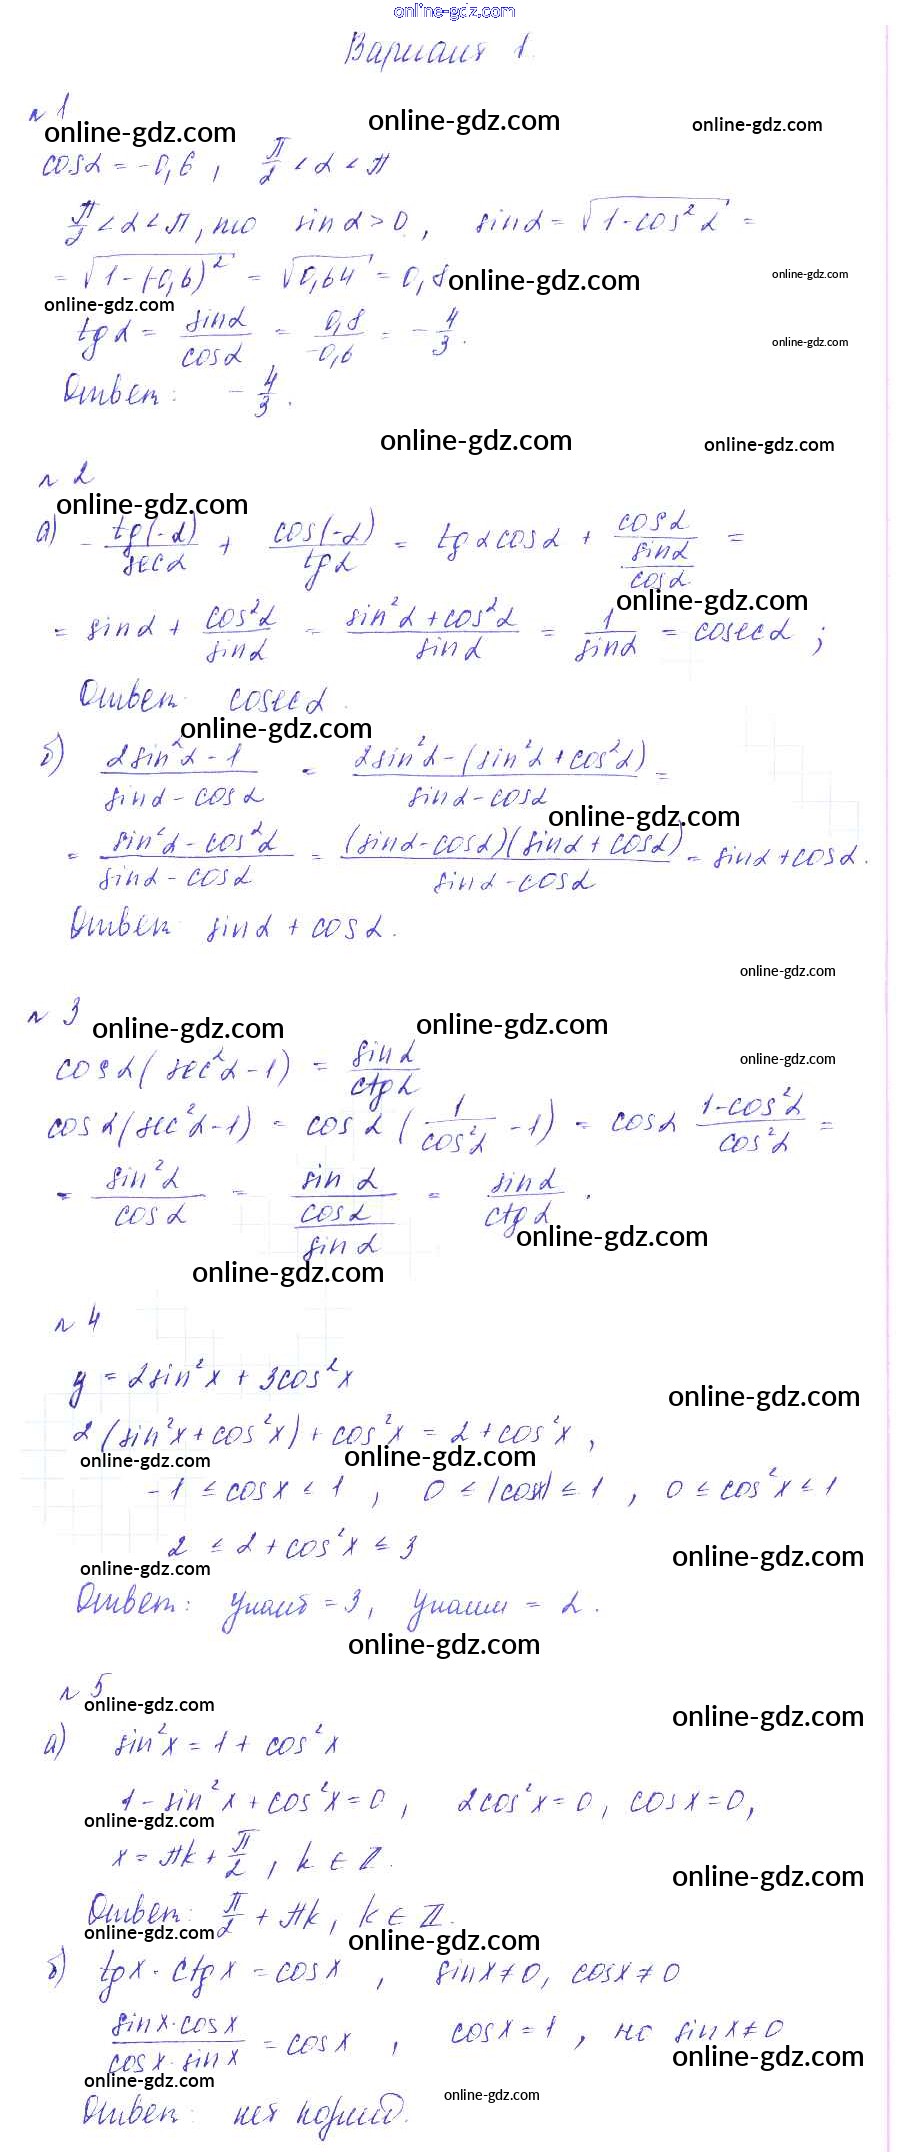 online-gdz.com
Вариант 1.
№1
online-gdz.com online-gdz.com online-gdz.com
cosα = -0,6 , π/2 < α < π
π/2 < α < π, то sinα > 0, sinα = √(1-cos²α) =
= √(1-(-0,6)²) = √0,64 = 0,8 online-gdz.com online-gdz.com
online-gdz.com
tgα = sinα/cosα = 0,8/-0,6 = -4/3. online-gdz.com
Ответ: -4/3.
online-gdz.com online-gdz.com
№2
online-gdz.com
а) - tg(-α)/secα + cos(-α)/tgα = tgα cosα + cosα/(sinα/cosα) =
online-gdz.com
= sinα + cos²α/sinα = (sin²α + cos²α)/sinα = 1/sinα = cosecα ;
Ответ: cosecα.
online-gdz.com
б) (2sin²α - 1)/(sinα - cosα) = (2sin²α - (sin²α + cos²α))/(sinα - cosα) =
online-gdz.com
= (sin²α - cos²α)/(sinα - cosα) = (sinα - cosα)(sinα + cosα)/(sinα - cosα) = sinα + cosα.
Ответ: sinα + cosα.
online-gdz.com
№3
online-gdz.com online-gdz.com
cosα(sec²α - 1) = sinα/ctgα online-gdz.com
cosα(sec²α - 1) = cosα(1/cos²α - 1) = cosα (1-cos²α)/cos²α =
= sin²α/cosα = sinα/(cosα/sinα) = sinα/ctgα .
online-gdz.com
online-gdz.com
№4
y = 2sin²x + 3cos²x
online-gdz.com
2(sin²x + cos²x) + cos²x = 2 + cos²x ,
online-gdz.com online-gdz.com
-1 ≤ cosx ≤ 1 , 0 ≤ |cosx| ≤ 1 , 0 ≤ cos²x ≤ 1
2 ≤ 2 + cos²x ≤ 3
online-gdz.com online-gdz.com
Ответ: yнаиб = 3, yнаим = 2.
online-gdz.com
№5
online-gdz.com online-gdz.com
а) sin²x = 1 + cos²x
1 - sin²x + cos²x = 0 , 2cos²x = 0, cosx = 0,
online-gdz.com
x = πk + π/2 , k ∈ Z.
online-gdz.com
Ответ: π/2 + πk, k ∈ Z.
online-gdz.com online-gdz.com
б) tgx · ctgx = cosx , sinx ≠ 0, cosx ≠ 0
sinx·cosx/cosx·sinx = cosx , cosx = 1 , но sinx ≠ 0
online-gdz.com
online-gdz.com online-gdz.com
Ответ: нет корней.